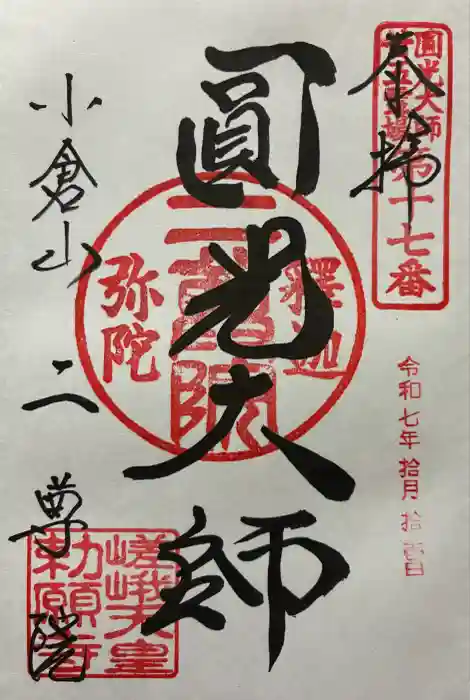 奉拝
圓光大師
廿五霊場第十七番
令和七年拾月拾壹日
圓光大師
釋迦
二尊院
弥陀
小倉山二尊院
嵯峨天皇
勅願寺